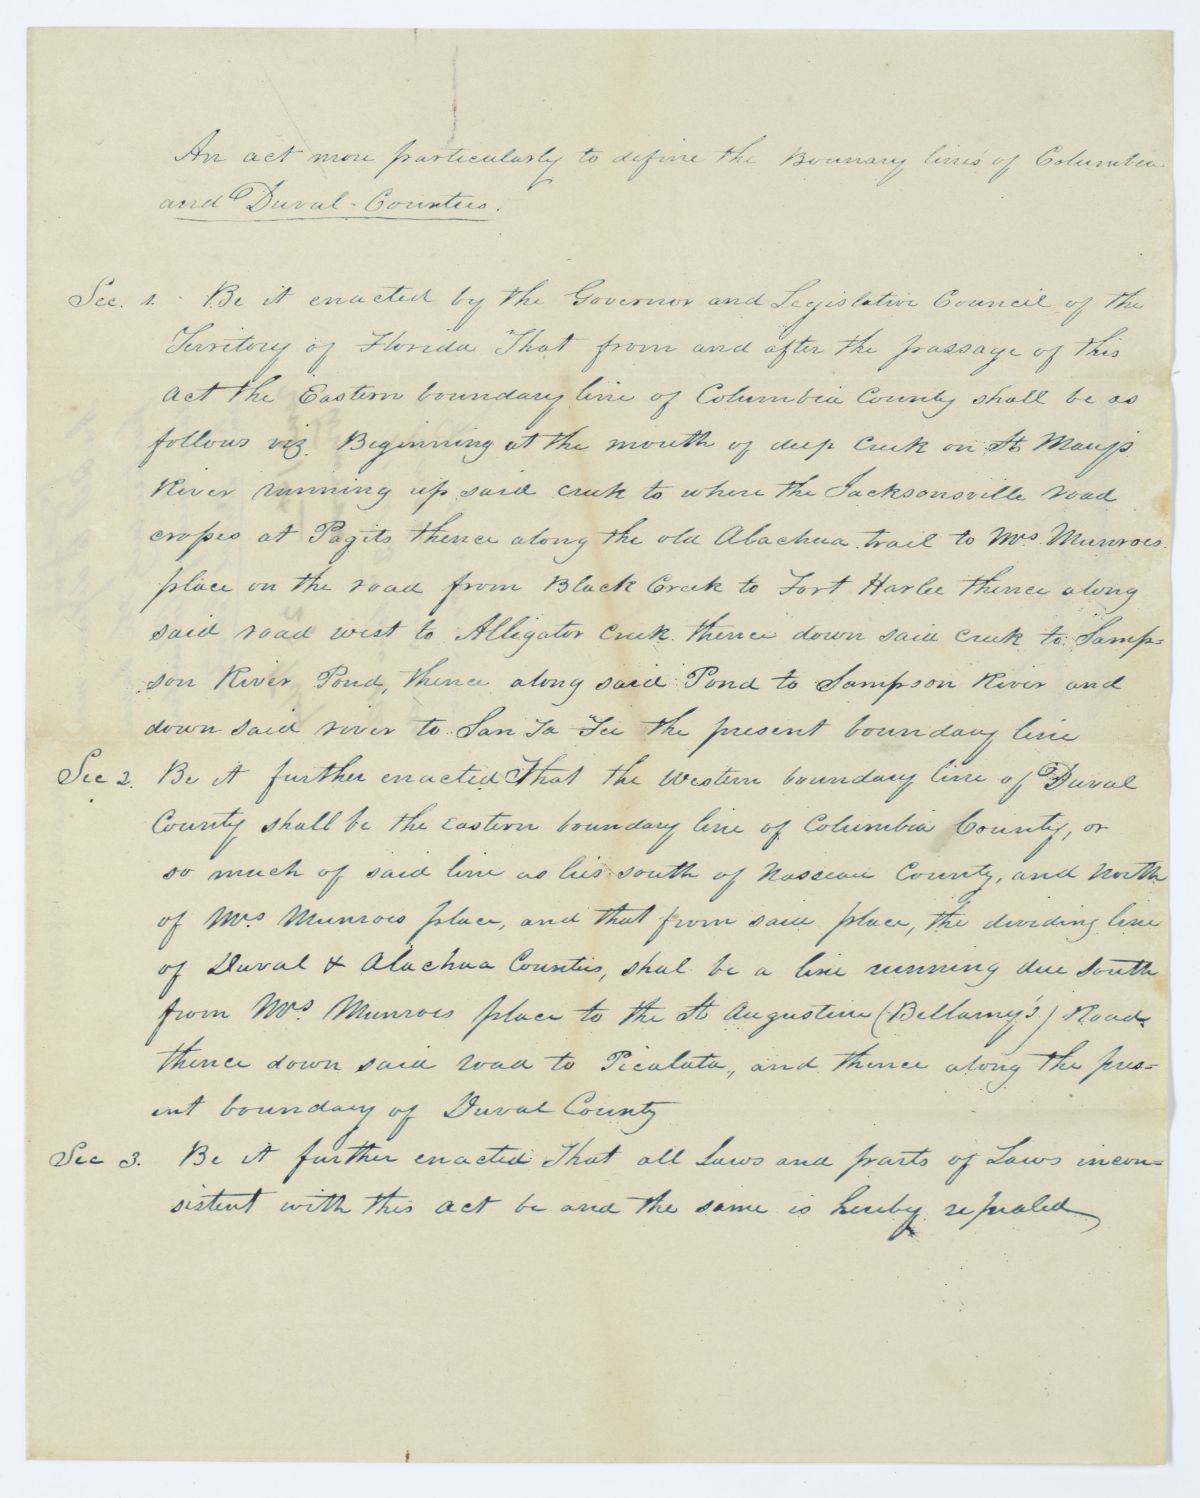 An act more particularly to define the Bounary lines of Columbia
and Duval Counties.
Sec. 1. Be it enacted by the Governor and Legislative Council of the
Territory of Florida That from and after the passage of this
Act the Eastern boundary line of Columbia County shall be as
follows viz. Beginning at the mouth of deep Creek on St Marys
River running up said creek to where the Jacksonsville road
crosses at Pagits thence along the old Alachua trail to Mrs. Munroes
place on the road from Black Creek to Fort Harlee thence along
said road west to Alligator Creek thence down said creek to Samp=
son River Pond, thence along said Pond to Sampson River and
down said river to San Ta Fee the present boundary line
Sec 2. Be it further enacted That the Western boundary line of Duval
County shall be the eastern boundary line of Columbia County, or
so much of said line as lies south of Nassau County, and North
of Mrs Munroes place, and that from said place, the dividing line
of Duval & Alachua Counties, shal be a line running due South
from Mrs. Munroes place to the St Augustine (Bellamy's) Road
thence down said road to Picalata, and thence along the pres=
ent boundary of Duval County
Sec 3. Be it further enacted That all Laws and parts of Laws incon=
sistent with this act be and the same is hereby repealed